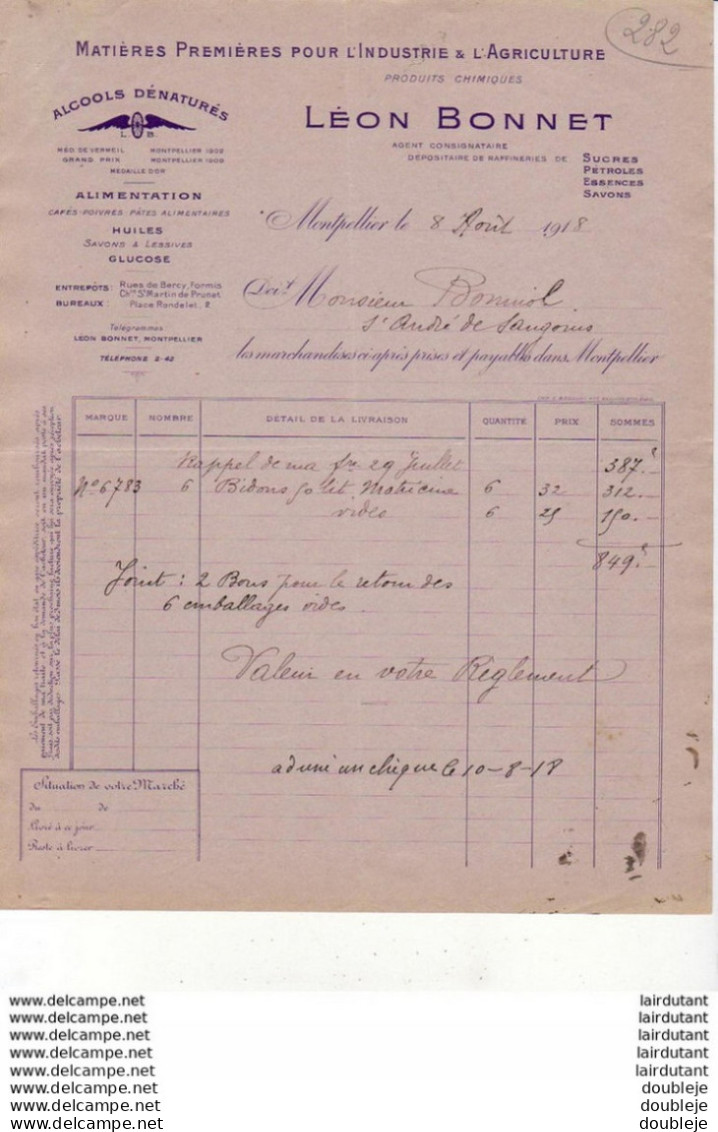 282
MATIÈRES PREMIÈRES POUR L'INDUSTRIE & L'AGRICULTURE
PRODUITS CHIMIQUES
ALCOOLS DÉNATURÉS
L. B.
LÉON BONNET
AGENT CONSIGNATAIRE
DÉPOSITAIRE DE RAFFINERIES DE
SUCRES
PÉTROLES
ESSENCES
SAVONS
MÉD. DE VERMEIL MONTPELLIER
GRAND PRIX MONTPELLIER
MÉDAILLE D'OR
ALIMENTATION
CAFÉS-POIVRES PÂTES ALIMENTAIRES
HUILES
SAVONS & LESSIVES
GLUCOSE
Montpellier le 8 Août 1918
ENTREPÔTS: Rues de Bercy, Formis
Chin St Martin de Prunet
BUREAUX: Place Rondelet, 2
Doit Monsieur Bonniol
St André de Sangonis
Télégrammes
LÉON BONNET, MONTPELLIER
TÉLÉPHONE 2-42
les marchandises ci-après prises et payables dans Montpellier
MARQUE NOMBRE DÉTAIL DE LA LIVRAISON QUANTITÉ PRIX SOMMES
Rappel de ma fre 29 Juillet 387.-
No 6783 6 Bidons 50 lit. 6 52 312.-
vides 6 25 150.-
849.
Joint: 2 Bons pour le retour des
6 emballages vides.
Valeur en votre Règlement
un chèque le 10-8-18
Situation de votre Marché
du de
Livré à ce jour
Reste à livrer
www.delcampe.net lairdutant
www.delcampe.net lairdutant
www.delcampe.net lairdutant
www.delcampe.net lairdutant
www.delcampe.net lairdutant
www.delcampe.net doubleje
www.delcampe.net doubleje
www.delcampe.net doubleje